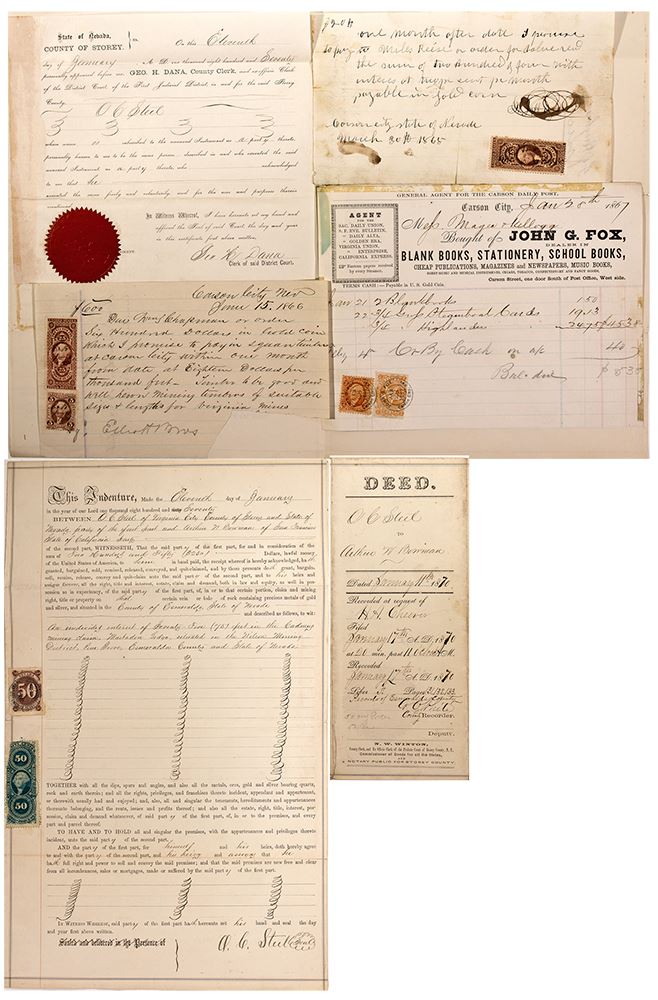 State of Nevada, } ss.
COUNTY OF STOREY.
On this Eleventh
day of January A. D. one thousand eight hundred and Seventy
personally appeared before me GEO. H. DANA, County Clerk, and ex-officio Clerk
of the District Court of the First Judicial District, in and for the said Storey
County,
O C Steel
whose name is subscribed to the annexed Instrument as a part y thereto,
personally known to me to be the same person described in and who executed the said
annexed Instrument as a part y thereto; who acknowledged
to me that he
executed the same freely and voluntarily, and for the uses and purposes therein
mentioned.
In Witness Whereof, I have hereunto set my hand and
affixed the Seal of said Court the day and year
in this certificate first above written.
Geo H. Dana
Clerk of said District Court.
one month after date I promise
to pay to Miles Reise or order for value recd
the sum of two hundred & four with
interest at per month
payable in Gold coin
Carson city state of Nevada
March 20th 1865
$600
Carson City Nev
June 15, 1866
Due Chapman or order
Six Hundred Dollars in Gold coin
which I promise to pay in square timber
at Carson City within one month
from date, at Eighteen Dollars per
thousand feet - Timber to be good and
well hewn mining timbers of suitable
sizes & lengths for Virginia Mines
Elliott Bros
GENERAL AGENT FOR THE CARSON DAILY POST.
Carson City, Jan 28th 1867
Mess. Mager & Kellogg
Bought of JOHN G. FOX,
DEALER IN
BLANK BOOKS, STATIONERY, SCHOOL BOOKS,
CHEAP PUBLICATIONS, MAGAZINES and NEWSPAPERS, MUSIC BOOKS,
Carson Street, one door South of Post Office, West side.
AGENT
FOR THE
SAC. DAILY UNION,
S. F. EVE. BULLETIN,
" DAILY ALTA,
" GOLDEN ERA,
VIRGINIA UNION,
" ENTERPRISE,
CALIFORNIA EXPRESS.
Various papers received
by every Steamer.
TERMS CASH:—Payable in U. S. Gold Coin.
Jan 21 2 Blank books 1.50
Cr By Cash on a/c 40
Bal due
This Indenture, Made the Eleventh day of January
in the year of our Lord one thousand eight hundred and sixty Seventy
BETWEEN O C Steel of Virginia City County of Storey and State of
Nevada, party of the first part and Arthur W Bowman of San Francisco
State of California
of the second part, WITNESSETH, That the said party of the first part, for and in consideration of the
sum of Two Hundred and Fifty (250) Dollars, lawful money
of the United States of America, to him in hand paid, the receipt whereof is hereby acknowledged, ha th
granted, bargained, sold, remised, released, conveyed, and quit-claimed, and by these presents do th grant, bargain,
sell, remise, release, convey and quit-claim unto the said party of the second part, and to his heirs and
assigns forever, all the right, title and interest, estate, claim and demand, both in law and equity, as well in pos-
session as in expectancy, of the said party of the first part, of, in or to that certain portion, claim and mining
right, title or property on that certain vein or lode of rock containing precious metals of gold
and silver, and situated in the County of Esmeralda, State of Nevada
and described as follows, to wit:
An undivided interest of Seventy Five (75) feet in the
mining claim, Ledge, situated in the Wilson Mining
District, Pine Grove, Esmeralda County and State of Nevada
TOGETHER with all the dips, spurs and angles, and also all the metals, ores, gold and silver bearing quartz,
rock and earth therein; and all the rights, privileges and franchises thereto incident, appendant and appurtenant,
or therewith usually had and enjoyed; and also, all and singular the tenements, hereditaments and appurtenances
thereunto belonging, and the rents, issues and profits thereof; and also all the estate, right, title, interest, pos-
session, claim and demand whatsoever, of said party of the first part, of, in or to the premises, and every
part and parcel thereof.
TO HAVE AND TO HOLD all and singular the premises, with the appurtenances and privileges thereto
incident, unto the said party of the second part,
AND the party of the first part, for himself and his heirs, doth hereby agree
to and with the party of the second part, and his heirs and assigns that he
ha th full right and power to sell and convey the said premises; and that the premises are now free and clear
from all incumbrances, sales or mortgages, made or suffered by the said party of the first part.
IN WITNESS WHEREOF, said party of the first part ha th hereunto set his hand and seal the day
and year first above written.
Sealed and delivered in the Presence of
O. C. Steel Seal
50
50
50
DEED.
O C Steel
to
Arthur W Bowman
Dated January 11th 1870
Recorded at request of
H. A. Cheever
Filed
January 17th A. D. 1870
at 20 min. past 11 O'clock A M.
Recorded
January 17th A. D. 1870
Liber F. Pages 132, 133
Records of Esmeralda County
County Recorder.
Deputy.
N. W. WINTON,
Commissioner of Deeds for all the States,
AND
NOTARY PUBLIC FOR STOREY COUNTY